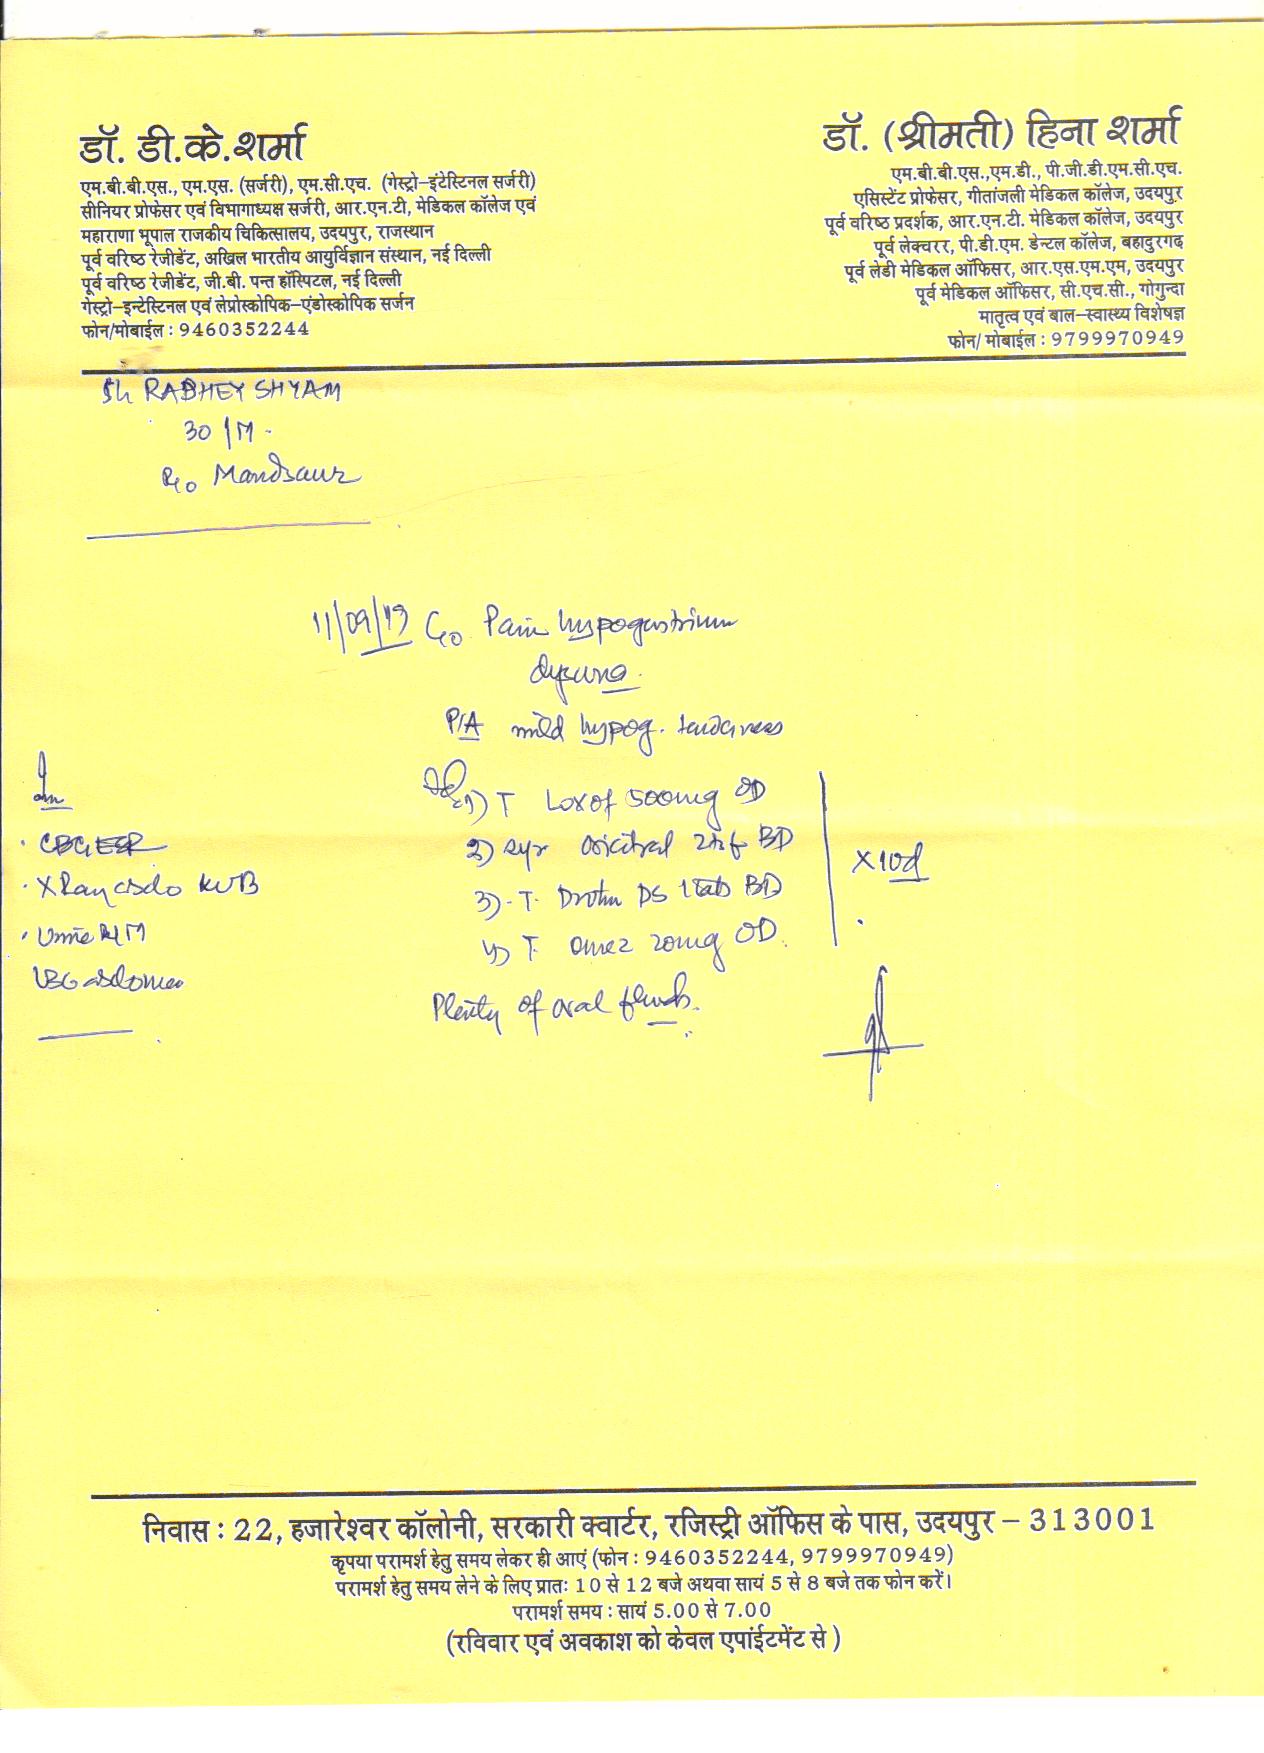 डॉ. डी.के.शर्मा
एम.बी.बी.एस., एम.एस. (सर्जरी), एम.सी.एच. (गेस्ट्रो-इंटेस्टिनल सर्जरी)
सीनियर प्रोफेसर एवं विभागाध्यक्ष सर्जरी, आर.एन.टी, मेडिकल कॉलेज एवं
महाराणा भूपाल राजकीय चिकित्सालय, उदयपुर, राजस्थान
पूर्व वरिष्ठ रेजीडेंट, अखिल भारतीय आयुर्विज्ञान संस्थान, नई दिल्ली
पूर्व वरिष्ठ रेजीडेंट, जी.बी. पन्त हॉस्पिटल, नई दिल्ली
गेस्ट्रो-इन्टेस्टिनल एवं लेप्रोस्कोपिक-एंडोस्कोपिक सर्जन
फोन/मोबाईल : 9460352244
डॉ. (श्रीमती) हिना शर्मा
एम.बी.बी.एस.,एम.डी., पी.जी.डी.एम.सी.एच.
एसिस्टेंट प्रोफेसर, गीतांजली मेडिकल कॉलेज, उदयपुर
पूर्व वरिष्ठ प्रदर्शक, आर.एन.टी. मेडिकल कॉलेज, उदयपुर
पूर्व लेक्चरर, पी.डी.एम. डेन्टल कॉलेज, बहादुरगढ़
पूर्व लेडी मेडिकल ऑफिसर, आर.एस.एम.एम, उदयपुर
पूर्व मेडिकल ऑफिसर, सी.एच.सी., गोगुन्दा
मातृत्व एवं बाल-स्वास्थ्य विशेषज्ञ
फोन/ मोबाईल : 9799970949
Sh RADHEY SHYAM
30/M
R/o Mandsaur
11/09/19 C/o Pain hypogastrium
dysuria
P/A mild hypog. tenderness
1) T Loxof 500mg OD
2) Syr BD
3) T. Drotin DS 1 tab BD
4) T. Omez 20mg OD.
X10d
Plenty of oral fluids.
X Ray abdo KUB
Urine R/M
USG abdomen
निवास : 22, हजारेश्वर कॉलोनी, सरकारी क्वार्टर, रजिस्ट्री ऑफिस के पास, उदयपुर - 313001
कृपया परामर्श हेतु समय लेकर ही आएं (फोन : 9460352244, 9799970949)
परामर्श हेतु समय लेने के लिए प्रातः 10 से 12 बजे अथवा सायं 5 से 8 बजे तक फोन करें।
परामर्श समय : सायं 5.00 से 7.00
(रविवार एवं अवकाश को केवल एपांईटमेंट से)